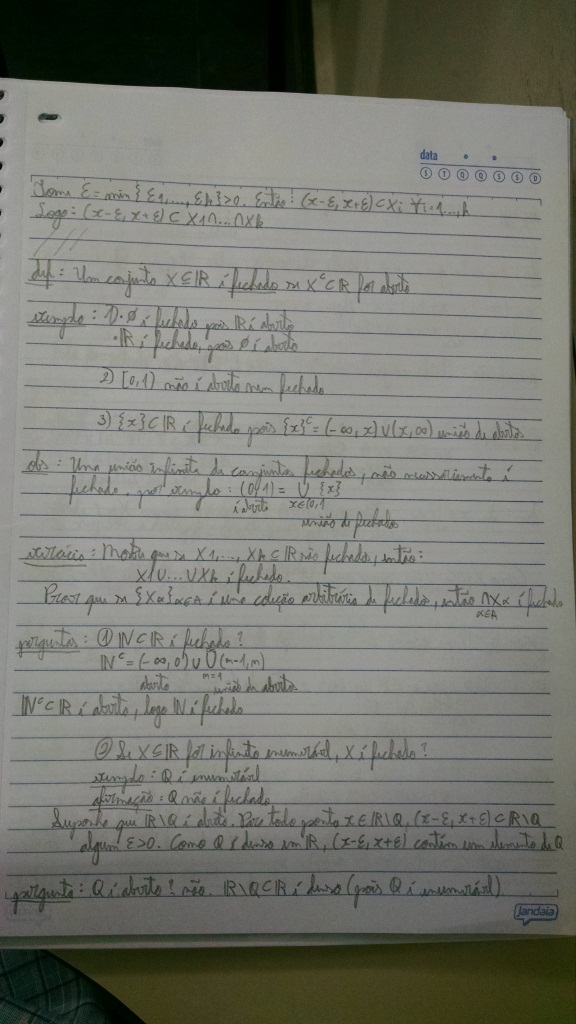 data
S T Q Q S S D
Tome ε = min{ε1, ..., εk} > 0. Então: (x-ε, x+ε) ⊂ Xi ∀i=1,...,k
Logo: (x-ε, x+ε) ⊂ X1 ∩ ... ∩ Xk
def: Um conjunto X ⊆ ℝ é fechado se Xᶜ ⊂ ℝ for aberto
exemplo: 1) · ∅ é fechado pois ℝ é aberto
· ℝ é fechado, pois ∅ é aberto
2) [0,1) não é aberto nem fechado
3) {x} ⊂ ℝ é fechado pois {x}ᶜ = (-∞, x) ∪ (x, ∞) união de abertos
obs: Uma união infinita de conjuntos fechados, não necessariamente é
fechado, por exemplo: (0,1) = ∪ {x}
é aberto x∈(0,1)
união de fechados
exercício: Mostre que se X1, ..., Xk ⊂ ℝ são fechados, então:
X1 ∪ ... ∪ Xk é fechado.
Provar que se {Xα}α∈A é uma coleção arbitrária de fechados, então ∩Xα é fechado
α∈A
perguntas: ① ℕ ⊂ ℝ é fechado?
ℕᶜ = (-∞, 0) ∪ ∪(m-1, m)
aberto m=1 união de abertos
ℕᶜ ⊂ ℝ é aberto, logo ℕ é fechado
② Se X ⊆ ℝ for infinito enumerável, X é fechado?
exemplo: Q é enumerável
afirmação: Q não é fechado
Suponha que ℝ\Q é aberto. Para todo ponto x ∈ ℝ\Q, (x-ε, x+ε) ⊂ ℝ\Q
algum ε>0. Como Q é denso em ℝ, (x-ε, x+ε) contém um elemento de Q
pergunta: Q é aberto? não. ℝ\Q ⊂ ℝ é denso (pois Q é enumerável)
Jandaia